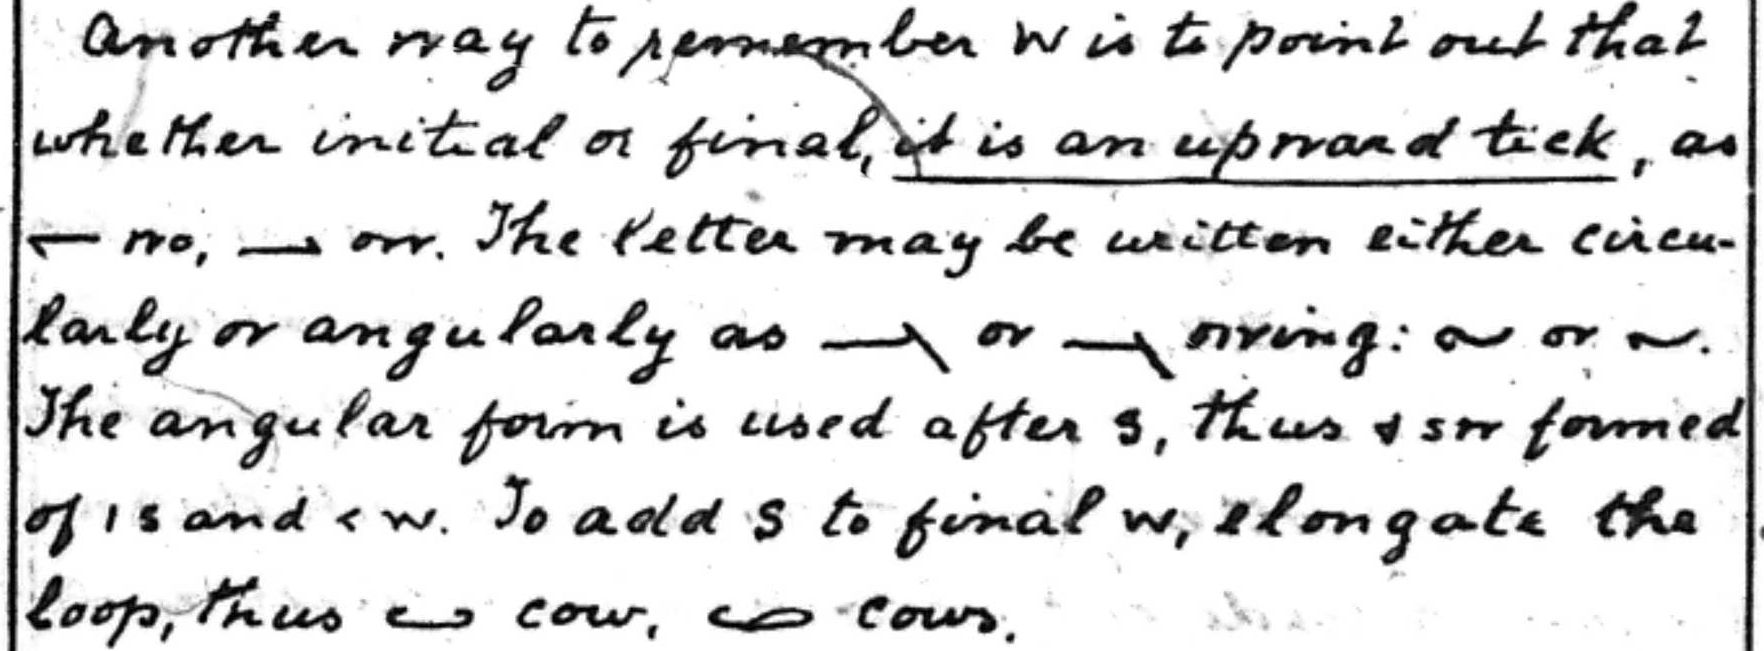 Another way to remember w is to point out that
whether initial or final, it is an upward tick, as
wo, ow. The letter may be written either circu-
larly or angularly as or owing: or .
The angular form is used after s, thus sw formed
of s and w. To add s to final w, elongate the
loop, thus cow, cows.